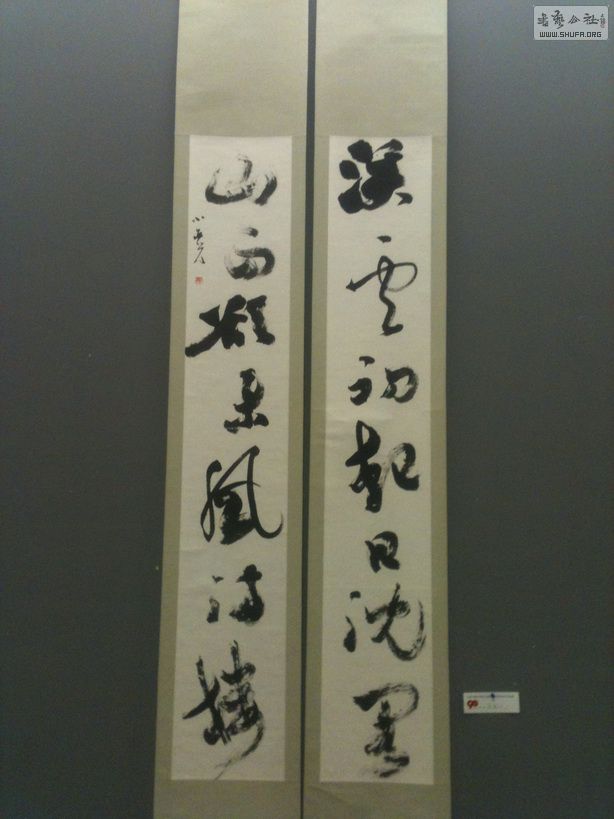 溪雲初起日沈閣
山雨欲來風滿樓
書藝公社
WWW.SHUFA.ORG